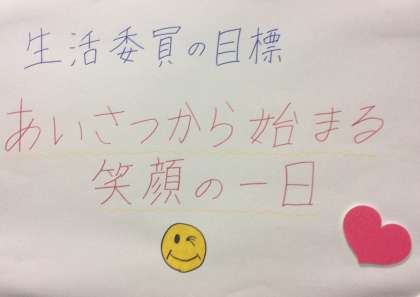 生活委員の目標
あいさつから始まる
笑顔の一日